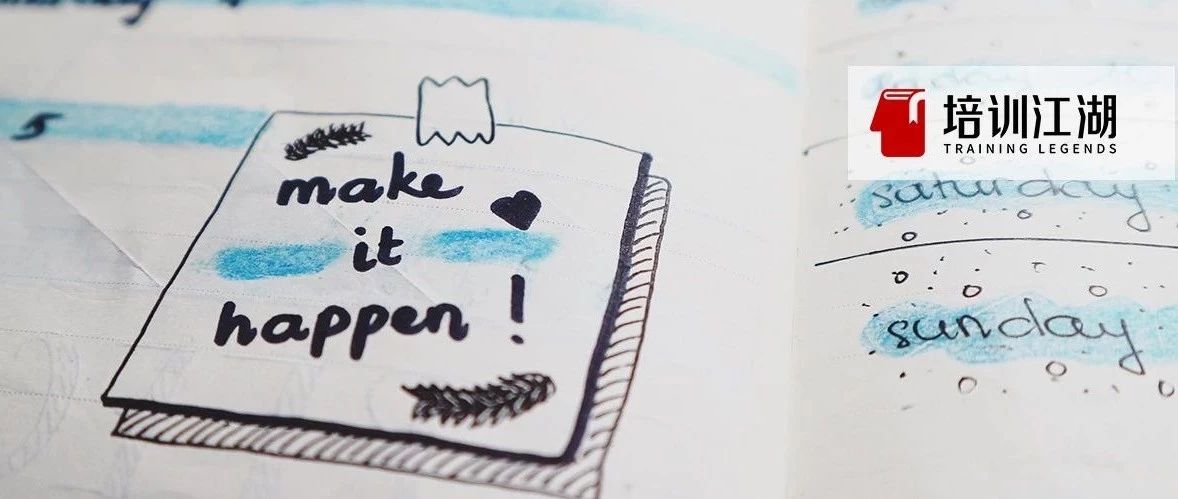 5
make
it
happen!
培训江湖
TRAINING LEGENDS
saturday
sunday